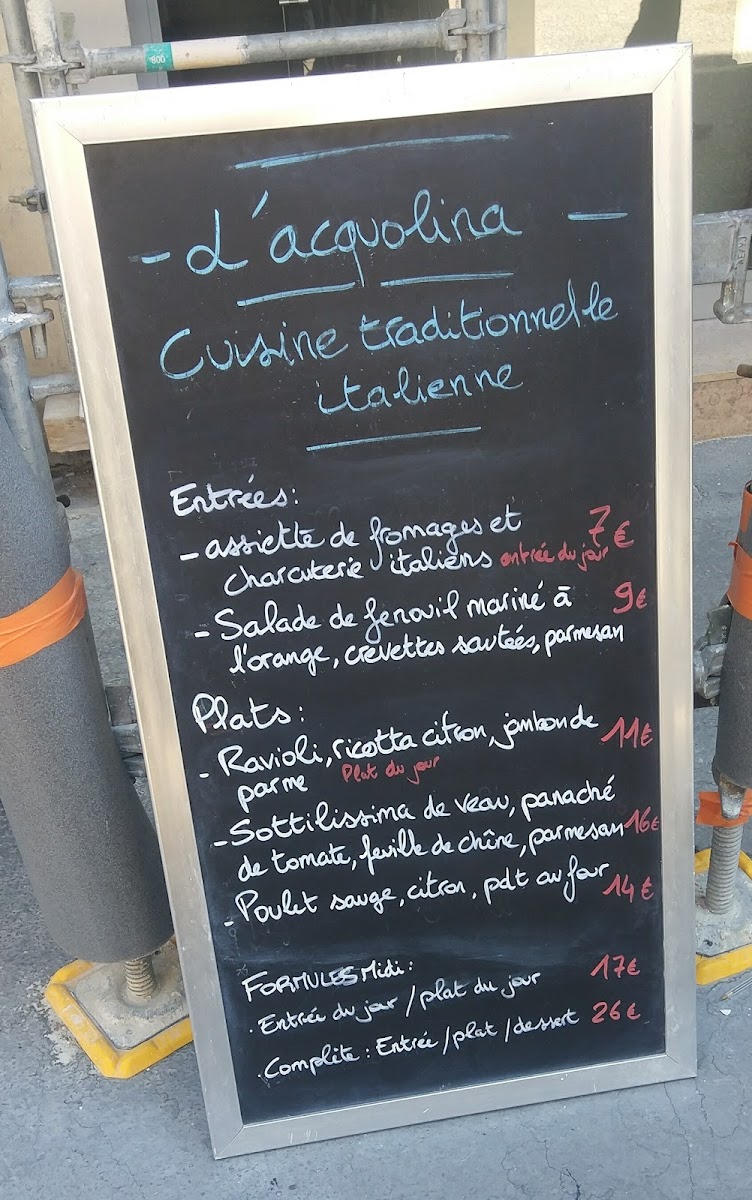 - L'acquolina -
Cuisine traditionnelle
italienne
Entrées:
- assiette de fromages et 7€
charcuterie italiens entrée du jour
- Salade de fenouil mariné à 9€
l'orange, crevettes sautées, parmesan
Plats:
- Ravioli, ricotta citron, jambon de 11€
parme Plat du jour
- Sottilissima de veau, panaché
de tomate, feuille de chêne, parmesan 16€
- Poulet sauge, citron, pdt au four 14€
FORMULES Midi:
. Entrée du jour / plat du jour 17€
. Complète: Entrée/plat/dessert 26€
800